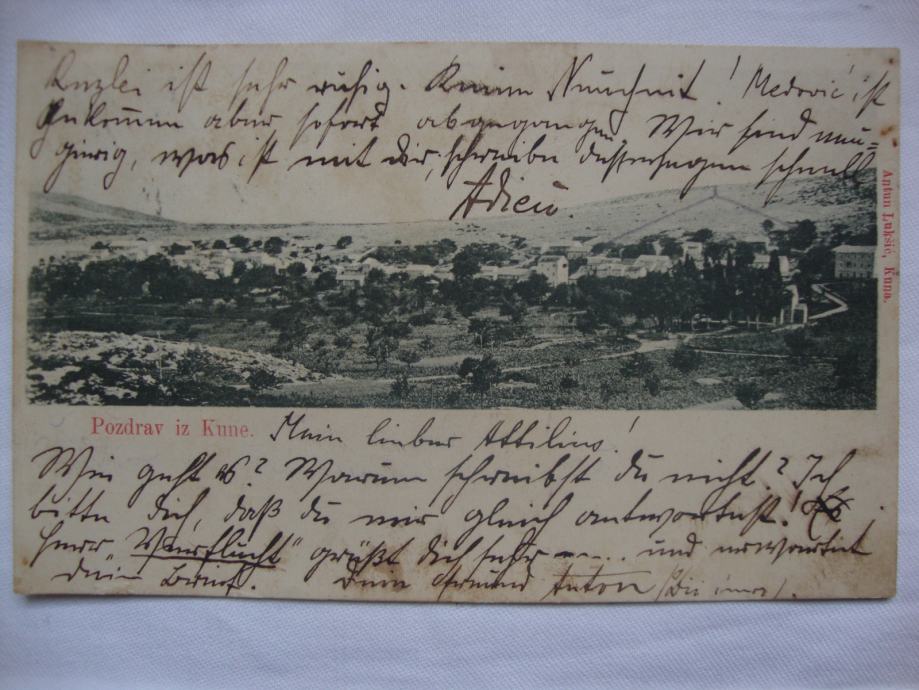 Kuzlei ist sehr ruhig. Keinen Neuigkeit! Medović ist
gekommen aber sofort abgegangen. Wir sind neu=
gierig, was ist mit dir, schreibe dessentwegen schnell
Adieu.
Antun Lukšić, Kuna.
Pozdrav iz Kune. Mein lieber Attilius!
Wie geht es? Warum schreibst du nicht? Ich
bitte dich, daß du mir gleich antwortest!
Herr „Verflucht" grüßt dich sehr –––.. und erwartet
dein Brief. Dein Freund Anton